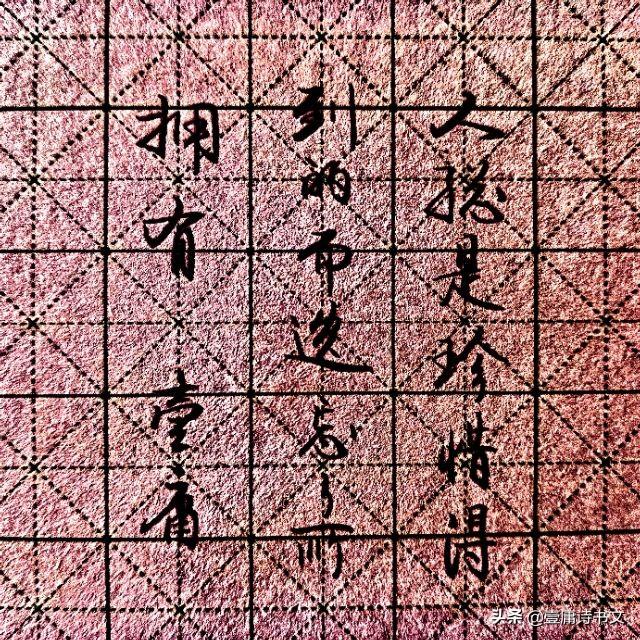 人總是珍惜得
到的而遗忘了所
拥有 壹庸
头条 @壹庸诗书文